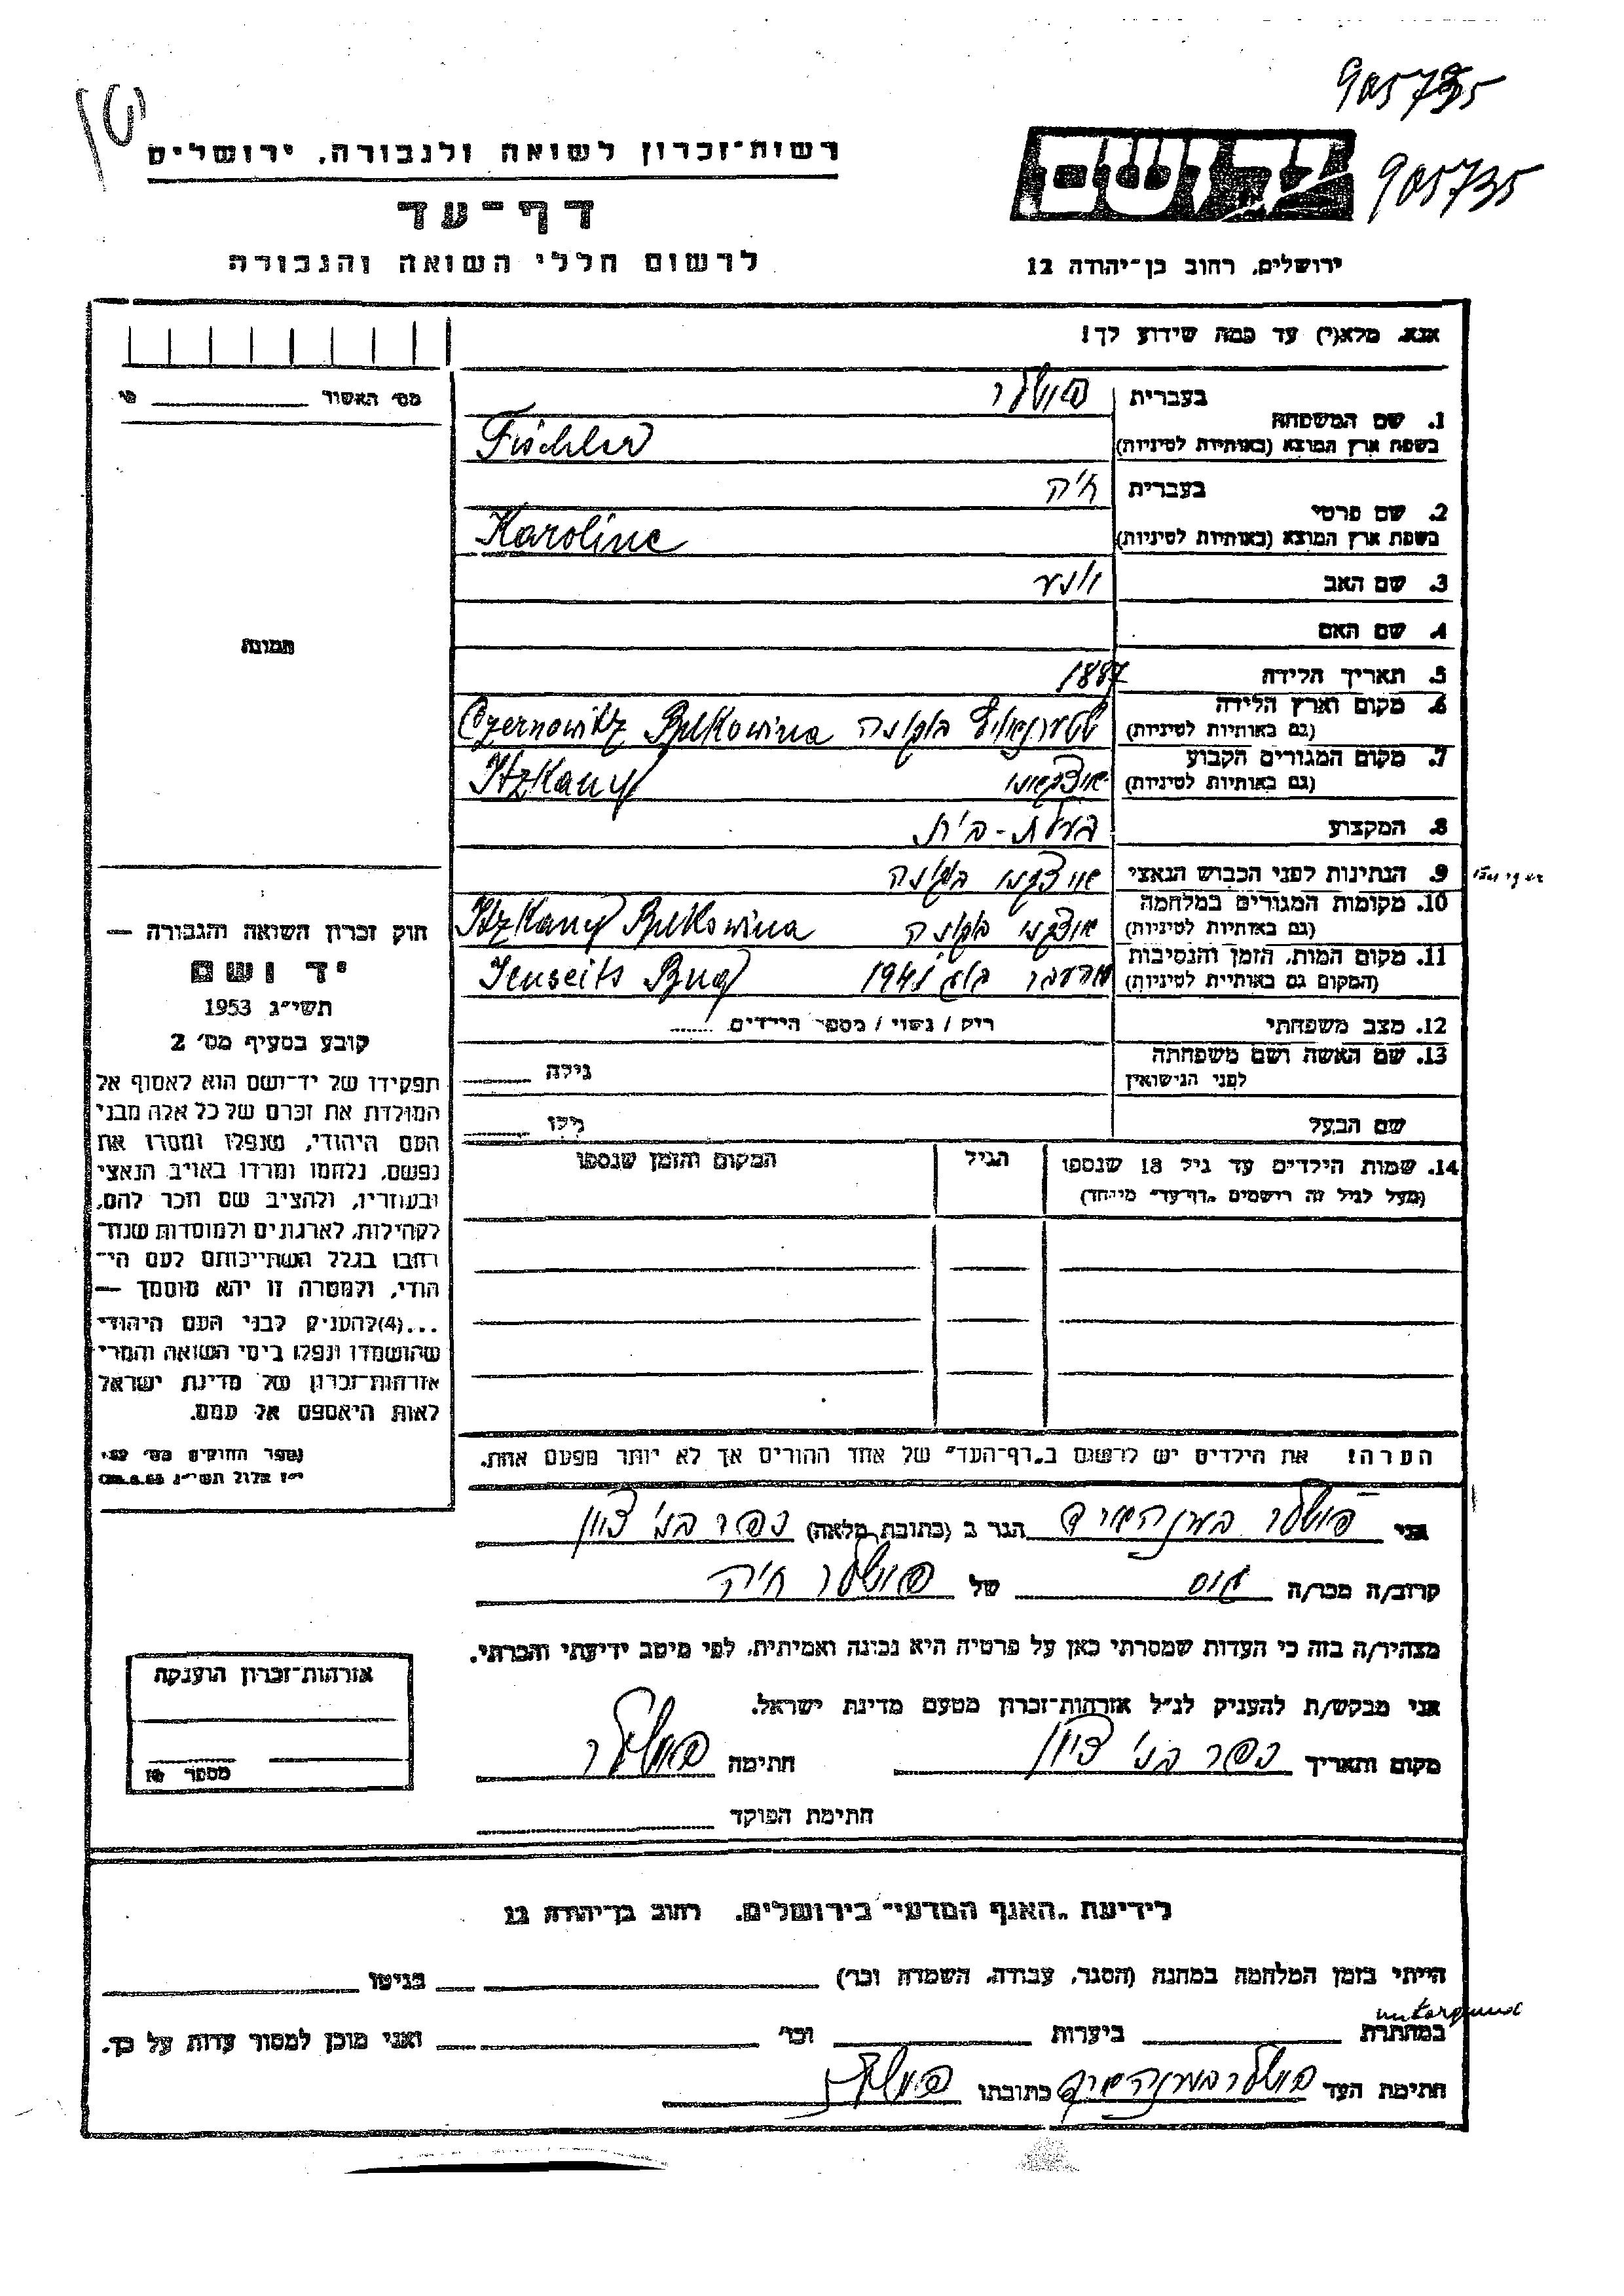 905735
905735
רשות־זכרון לשואה ולגבורה, ירושלים
דף־עד
לרשום חללי השואה והגבורה
ידושם
ירושלים, רחוב בן־יהודה 12
אנא, מלא(י) עד כמה שידוע לך!
מס׳ האשור
בעברית
1. שם המשפחה
בשפת ארץ המוצא (באותיות לטיניות)
Fischler
בעברית חיה
2. שם פרטי
בשפת ארץ המוצא (באותיות לטיניות)
Karoline
3. שם האב
4. שם האם
תמונה
5. תאריך הלידה 1887
6. מקום וארץ הלידה
(גם באותיות לטיניות) Czernowitz Bukowina
7. מקום המגורים הקבוע
(גם באותיות לטיניות) Itzkany
8. המקצוע בעלת-בית
9. הנתינות לפני הכבוש הנאצי
10. מקומות המגורים במלחמה
(גם באותיות לטיניות) Itzkany Bukowina
11. מקום המות, הזמן והנסיבות
(המקום גם באותיות לטיניות) מעבר בוג 1941 Jenseits Bug
12. מצב משפחתי רוק / נשוי / מספר הילדים
13. שם האשה ושם משפחתה
לפני הנישואין גילה
שם הבעל גילו
14. שמות הילדים עד גיל 18 שנספו הגיל המקום והזמן שנספו
(מעל לגיל זה רושמים „דף־עד״ מיוחד)
חוק זכרון השואה והגבורה —
יד ושם
תשי״ג 1953
קובע בסעיף מס׳ 2
תפקידו של יד־ושם הוא לאסוף אל
המולדת את זכרם של כל אלה מבני
העם היהודי, שנפלו ומסרו את
נפשם, נלחמו ומרדו באויב הנאצי
ובעוזריו, ולהציב שם וזכר להם,
לקהילות, לארגונים ולמוסדות שנח־
רבו בגלל השתייכותם לעם הי־
הודי, ולמטרה זו יהא מוסמך —
...(4)להעניק לבני העם היהודי
שהושמדו ונפלו בימי השואה והמרי
אזרחות־זכרון של מדינת ישראל
לאות היאספם אל עמם.
ספר החוקים מס׳ 132
י״ז אלול תשי״ג
הערה! את הילדים יש לרשום ב„דף־העד״ של אחד ההורים אך לא יותר מפעם אחת.
אני הגר ב (כתובת מלאה) כפר בני ציון
קרוב/ה מכר/ה של חיה
מצהיר/ה בזה כי העדות שמסרתי כאן על פרטיה היא נכונה ואמיתית, לפי מיטב ידיעתי והכרתי.
אני מבקש/ת להעניק לנ״ל אזרחות־זכרון מטעם מדינת ישראל.
מקום ותאריך כפר בני ציון חתימה
חתימת הפוקד
אזרחות־זכרון הוענקה
מספר
לידיעת „האגף המדעי״ בירושלים, רחוב בן־יהודה 12
הייתי בזמן המלחמה במחנה (הסגר, עבודה, השמדה וכו׳) בגיטו
במחתרת ביערות וכו׳ ואני מוכן למסור עדות על כך.
חתימת העד כתובתו